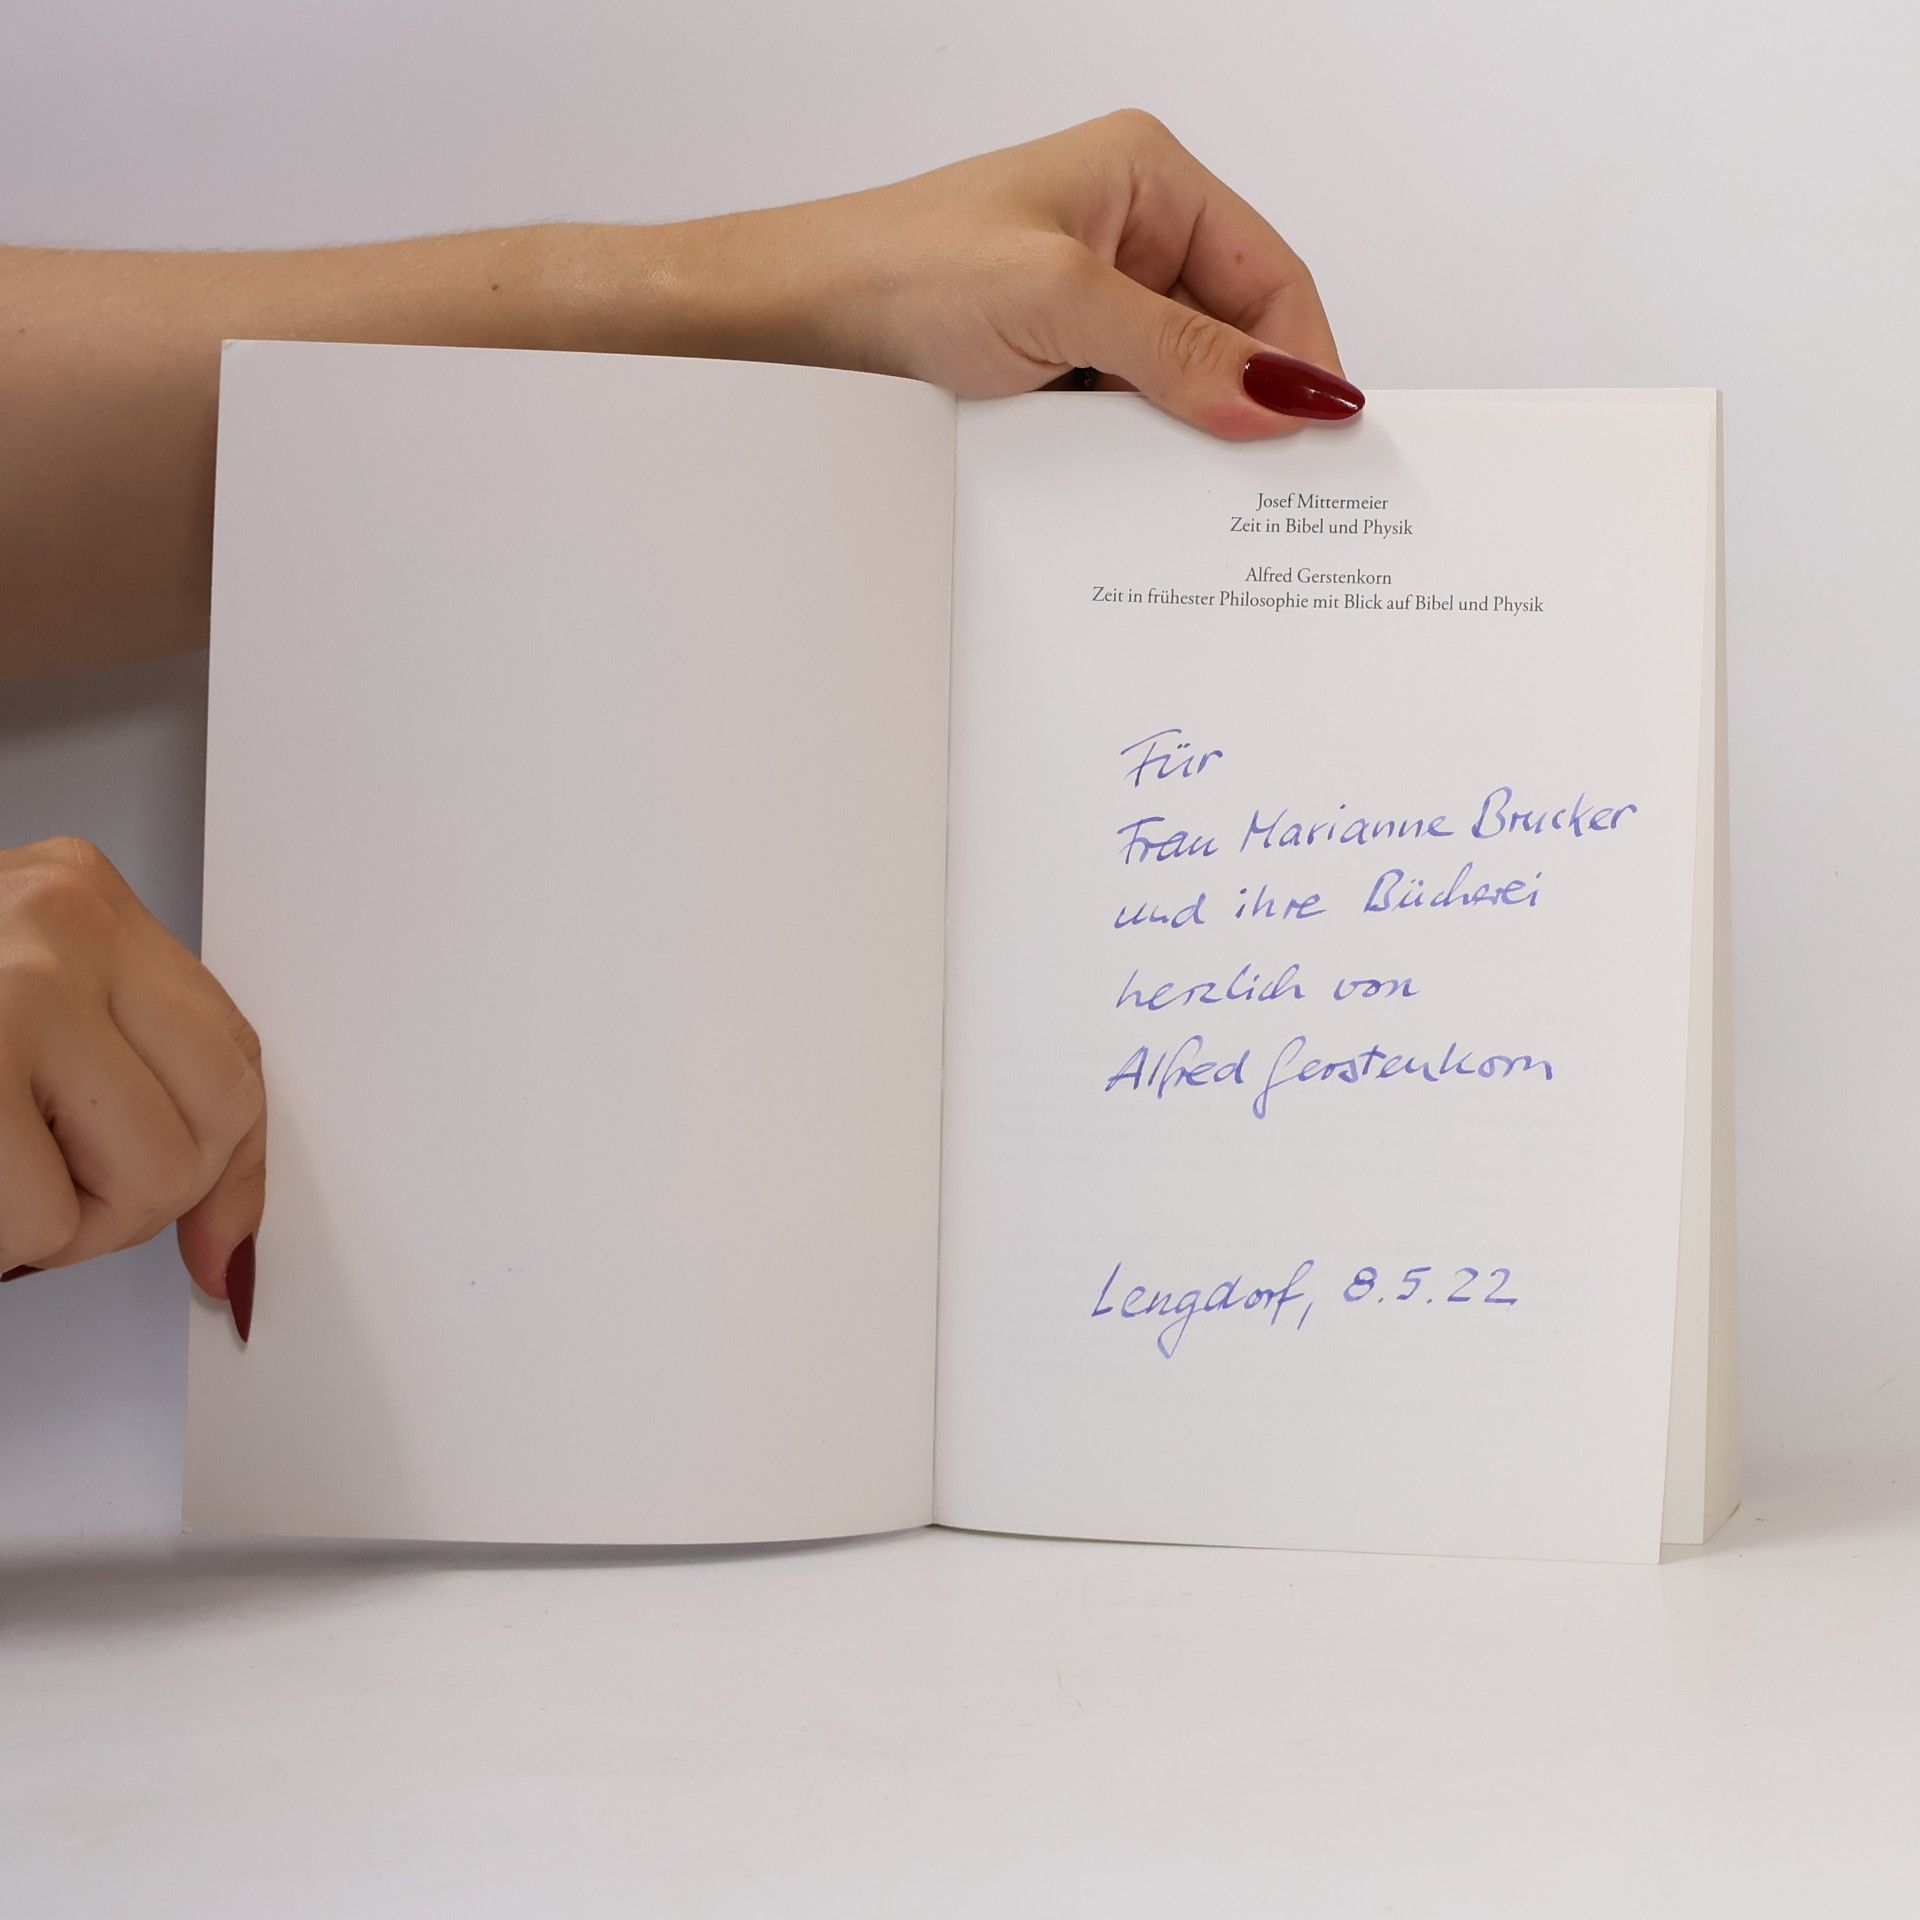 Josef Mittermeier
Zeit in Bibel und Physik
Alfred Gerstenkorn
Zeit in frühester Philosophie mit Blick auf Bibel und Physik
Für
Frau Marianne Brucker
und ihre Bücherei
herzlich von
Alfred Gerstenkorn
Lengdorf, 8.5.22